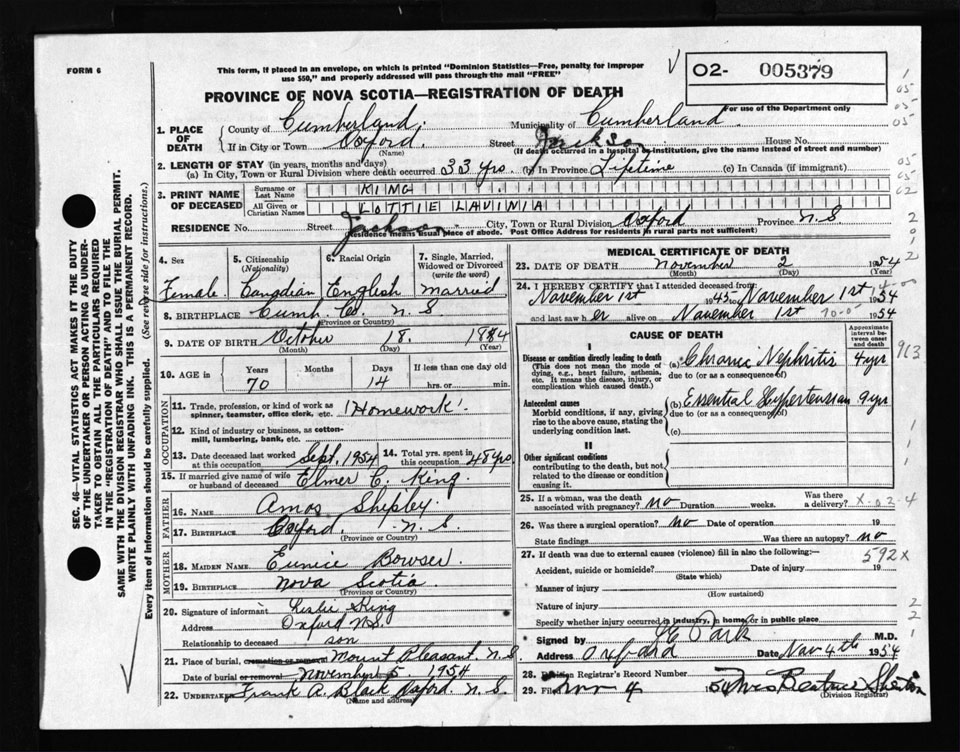 FORM 6
This form, if placed in an envelope, on which is printed "Dominion Statistics—Free, penalty for improper
use $50," and properly addressed will pass through the mail "FREE"
O2- 005379
For use of the Department only
PROVINCE OF NOVA SCOTIA—REGISTRATION OF DEATH
1. PLACE OF DEATH
County of Cumberland Municipality of Cumberland
If in City or Town Oxford Street Jackson House No.
(Name) (If death occurred in a hospital or institution, give the name instead of street and number)
2. LENGTH OF STAY (in years, months and days)
(a) In City, Town or Rural Division where death occurred 33 yrs. (b) In Province Lifetime (c) In Canada (if immigrant)
3. PRINT NAME OF DECEASED
Surname or Last Name KING
All Given or Christian Names LOTTIE LAVINIA
RESIDENCE No. Street Jackson City, Town or Rural Division Oxford Province N.S.
(Residence means usual place of abode. Post Office Address for residents in rural parts not sufficient)
4. Sex 5. Citizenship (Nationality) 6. Racial Origin 7. Single, Married, Widowed or Divorced (write the word)
Female Canadian English married
8. BIRTHPLACE Cumb. Co. N.S.
(Province or Country)
9. DATE OF BIRTH October 18. 1884
(Month) (Day) (Year)
10. AGE in Years Months Days If less than one day old
70 14 hrs. or min.
OCCUPATION
11. Trade, profession, or kind of work as
spinner, teamster, office clerk, etc. 'Homework'.
12. Kind of industry or business, as cotton-
mill, lumbering, bank, etc.
13. Date deceased last worked at this occupation Sept. 1954 14. Total yrs. spent in this occupation 48 yrs
15. If married give name of wife
or husband of deceased Elmer C. King
FATHER
16. Name Amos Shipley
17. Birthplace Oxford. N.S.
(Province or Country)
MOTHER
18. MAIDEN NAME Eunice Bowser
19. BIRTHPLACE Nova Scotia
(Province or Country)
20. Signature of informant Leslie King
Address Oxford N.S.
Relationship to deceased son
21. Place of burial, cremation or removal Mount Pleasant, N.S.
Date of burial or removal November 5 1954
22. Undertaker Frank A. Black Oxford. N.S.
(Name and address)
MEDICAL CERTIFICATE OF DEATH
23. DATE OF DEATH November 2 1954
(Month) (Day) (Year)
24. I HEREBY CERTIFY that I attended deceased from:
November 1st 1945 to November 1st 1954
and last saw her alive on November 1st 1954
CAUSE OF DEATH
Approximate interval between onset and death
I
Disease or condition directly leading to death (a) Chronic Nephritis 4 yr
(This does not mean the mode of due to (or as a consequence of)
dying, e.g., heart failure, asthenia,
etc. It means the disease, injury, or
complication which caused death.)
Antecedent causes (b) Essential Hypertension 9 yr
Morbid conditions, if any, giving due to (or as a consequence of)
rise to the above cause, stating the
underlying condition last. (c)
II
Other significant conditions
contributing to the death, but not
related to the disease or condition
causing it.
25. If a woman, was the death associated with pregnancy? no Duration weeks. Was there a delivery?
X-02-4
26. Was there a surgical operation? no Date of operation 19
State findings Was there an autopsy? no
27. If death was due to external causes (violence) fill in also the following:—
592 X
Accident, suicide or homicide? Date of injury 19
(State which)
Manner of injury
(How sustained)
Nature of injury
Specify whether injury occurred in industry, in home, or in public place
Signed by Park M.D.
Address Oxford Date Nov 4th 1954
28. Division Registrar's Record Number
29. Filed Nov 4 54 Mrs Beatrice
(Division Registrar)
SEC. 46—VITAL STATISTICS ACT MAKES IT THE DUTY
OF THE UNDERTAKER OR PERSON ACTING AS UNDER-
TAKER TO OBTAIN ALL THE PARTICULARS REQUIRED
IN THE "REGISTRATION OF DEATH" AND TO FILE THE
SAME WITH THE DIVISION REGISTRAR WHO SHALL ISSUE THE BURIAL PERMIT.
WRITE PLAINLY WITH UNFADING INK. THIS IS A PERMANENT RECORD.
Every item of information should be carefully supplied. (See reverse side for instructions.)